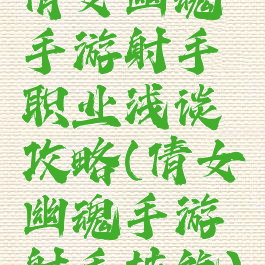 倩女幽魂
手游射手
职业浅谈
攻略(倩女
幽魂手游
射手技能)